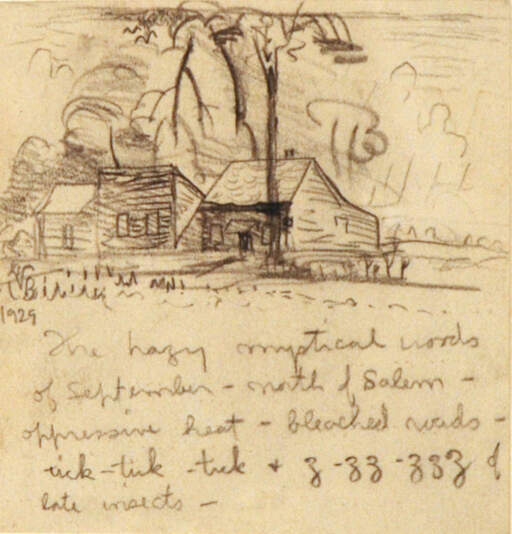 CB
1929
The hazy mystical woods
of September - north of Salem -
oppressive heat - bleached roads -
tick - tick - tick + z - zz - zzz of
late insects -